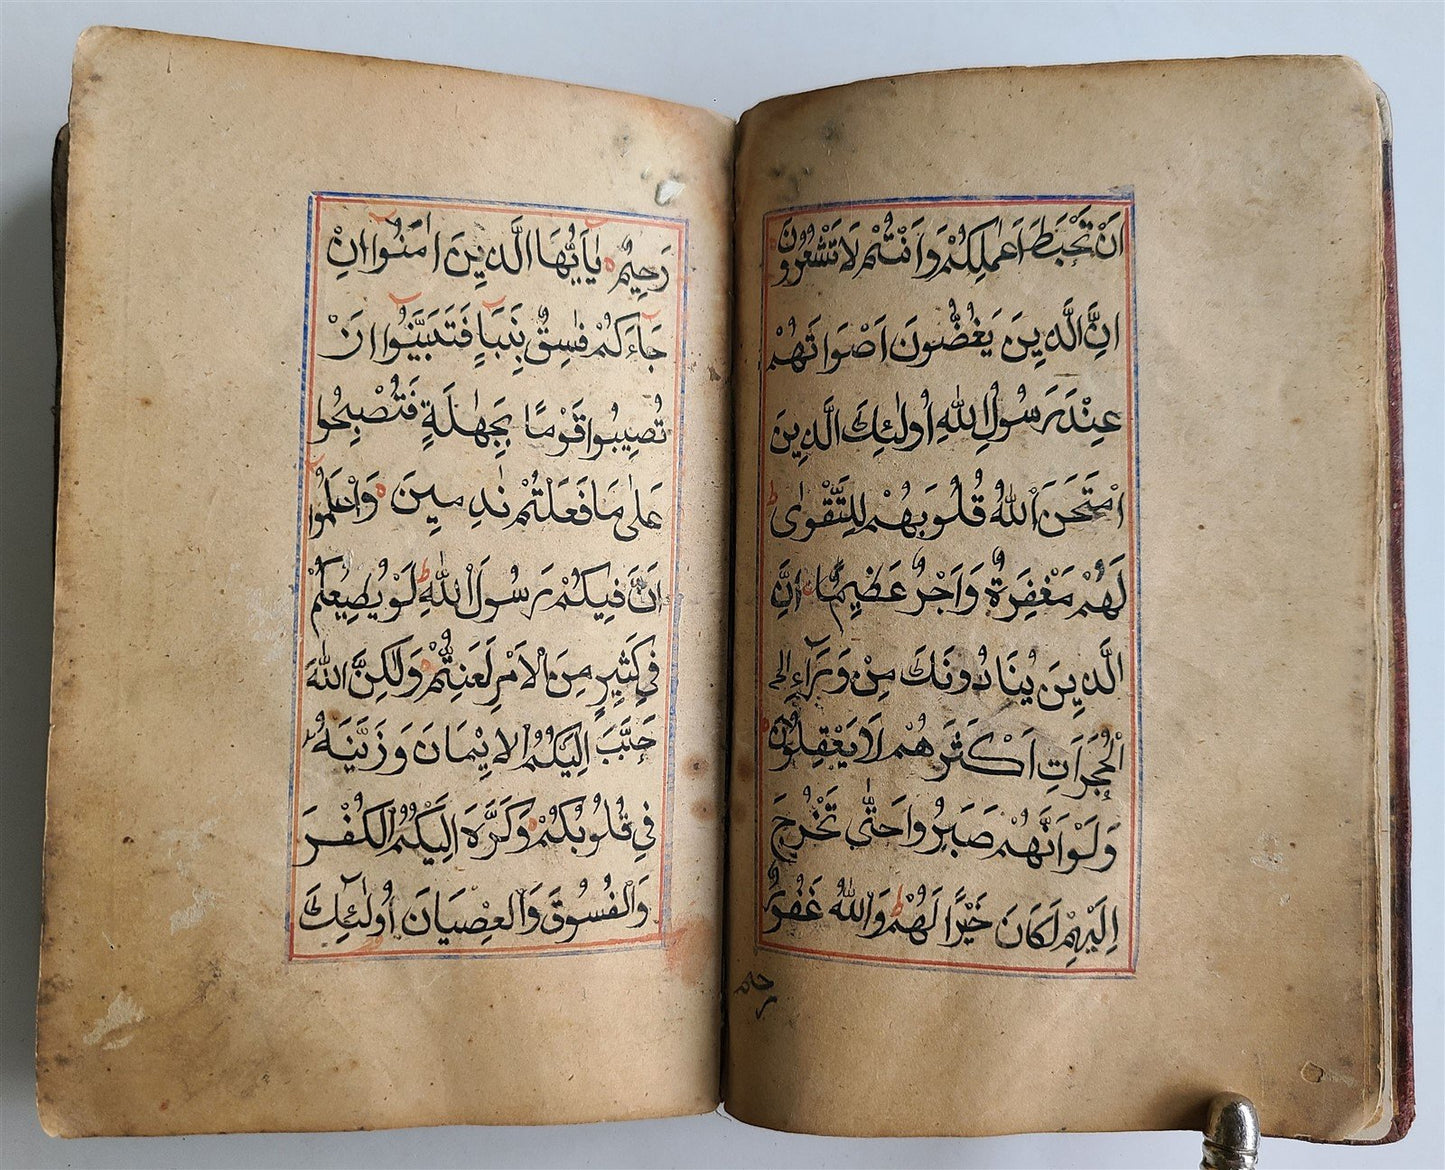 اَنْ تَحْبَطَ اَعْمَالُكُمْ وَاَنْتُمْ لَا تَشْعُرُوْنَ
اِنَّ الَّذِيْنَ يَغُضُّوْنَ اَصْوَاتَهُمْ
عِنْدَ رَسُوْلِ اللّٰهِ اُولٰئِكَ الَّذِيْنَ
امْتَحَنَ اللّٰهُ قُلُوْبَهُمْ لِلتَّقْوٰى ط
لَهُمْ مَغْفِرَةٌ وَاَجْرٌ عَظِيْمٌ اِنَّ
الَّذِيْنَ يُنَادُوْنَكَ مِنْ وَرَآءِ
الْحُجُرَاتِ اَكْثَرُهُمْ لَا يَعْقِلُوْنَ
وَلَوْ اَنَّهُمْ صَبَرُوْا حَتّٰى تَخْرُجَ
اِلَيْهِمْ لَكَانَ خَيْرًا لَهُمْ ط وَاللّٰهُ غَفُوْرٌ
رحيم
رَحِيْمٌ يٰاَيُّهَا الَّذِيْنَ اٰمَنُوْا اِنْ
جَآءَكُمْ فَاسِقٌ بِنَبَاٍ فَتَبَيَّنُوْا اَنْ
تُصِيْبُوْا قَوْمًا بِجَهٰلَةٍ فَتُصْبِحُوْا
عَلٰى مَا فَعَلْتُمْ نٰدِمِيْنَ وَاعْلَمُوْا
اَنَّ فِيْكُمْ رَسُوْلَ اللّٰهِ ط لَوْ يُطِيْعُكُمْ
فِيْ كَثِيْرٍ مِنَ الْاَمْرِ لَعَنِتُّمْ وَلٰكِنَّ اللّٰهَ
حَبَّبَ اِلَيْكُمُ الْاِيْمَانَ وَزَيَّنَهُ
فِيْ قُلُوْبِكُمْ وَكَرَّهَ اِلَيْكُمُ الْكُفْرَ
وَالْفُسُوْقَ وَالْعِصْيَانَ اُولٰئِكَ